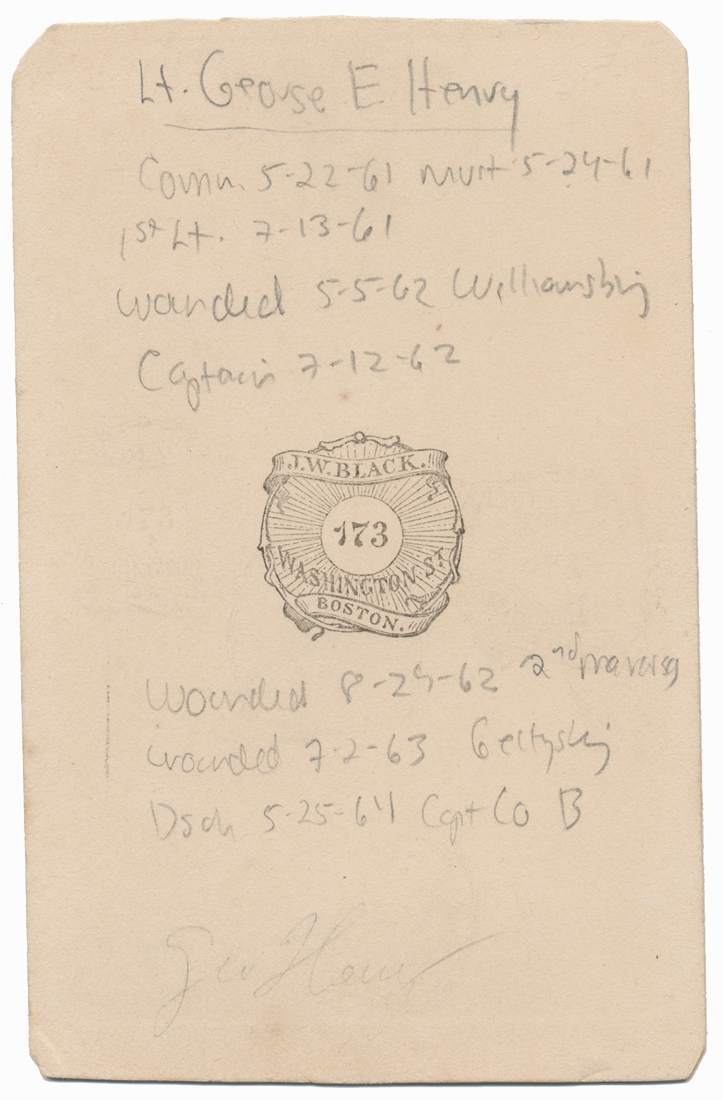 Lt. George E. Henry
Comm. 5-22-61 must 5-24-61
1st Lt. 7-13-61
wounded 5-5-62 Williamsburg
Captain 7-12-62
J.W. BLACK.
173
WASHINGTON ST.
BOSTON.
Wounded 8-29-62 2nd Manassas
wounded 7-2-63 Gettysburg
Dsch 5-25-64 Capt Co B
Geo Henry